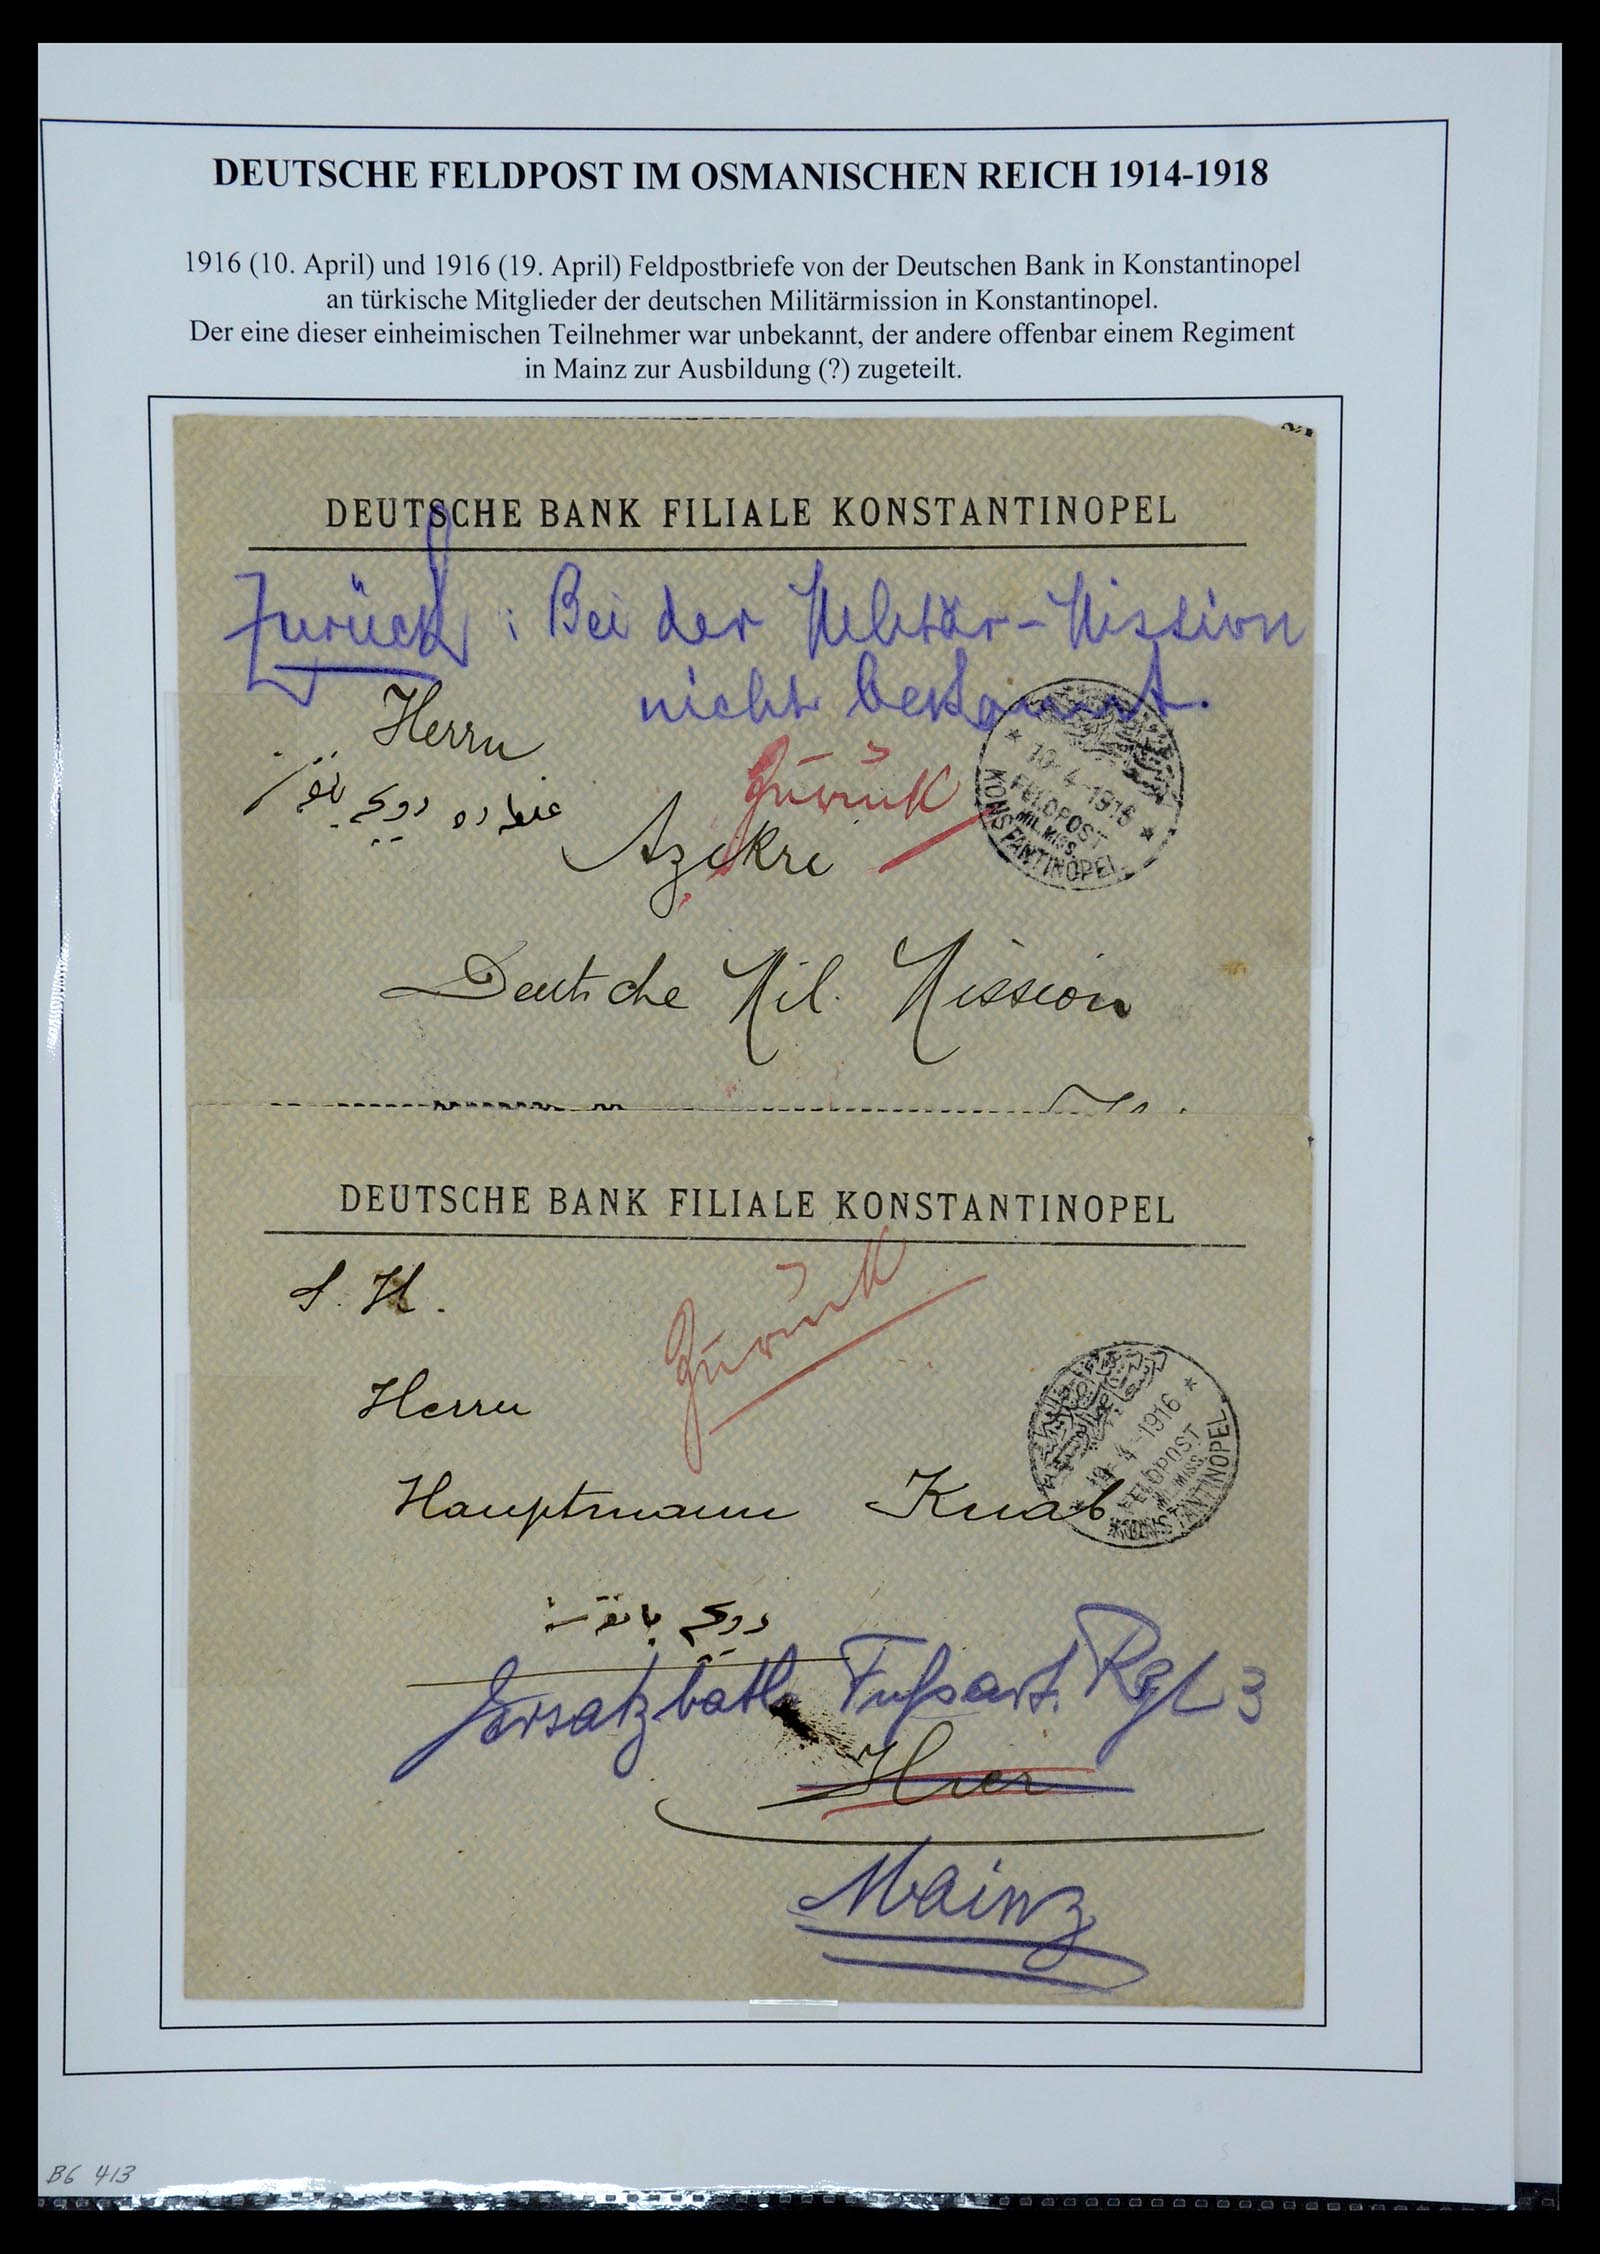 DEUTSCHE FELDPOST IM OSMANISCHEN REICH 1914-1918
1916 (10. April) und 1916 (19. April) Feldpostbriefe von der Deutschen Bank in Konstantinopel
an türkische Mitglieder der deutschen Militärmission in Konstantinopel.
Der eine dieser einheimischen Teilnehmer war unbekannt, der andere offenbar einem Regiment
in Mainz zur Ausbildung (?) zugeteilt.
DEUTSCHE BANK FILIALE KONSTANTINOPEL
Zurück: Bei der Militär-Mission
nicht bekannt.
Herrn
Zurück
10-4-1916
FELDPOST
MIL.MISS.
KONSTANTINOPEL
Azikri
Deutsche Mil. Mission
DEUTSCHE BANK FILIALE KONSTANTINOPEL
S. H.
Zurück
Herrn
19-4-1916
FELDPOST
MIL.MISS.
KONSTANTINOPEL
Hauptmann Knab
دویچه بانق
Ersatzbatl. Fußart. Rgt 3
Hier
Mainz
B6 413